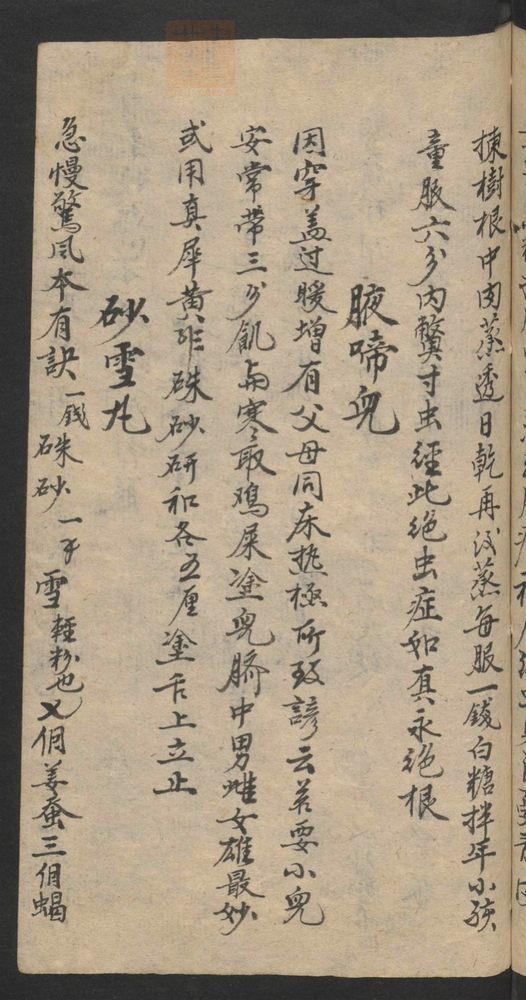 揀樹根中肉蒸透日乾再浸蒸每服一錢白糖拌年小孩
童服六分內鱉寸虫經此絕虫症如真永絕根
腋啼兒
因穿盖过暖增有父母同床热極所致諺云若要小兒
安常带三分飢与寒取鳮屎塗兒臍中男雌女雄最妙
或用真犀黄非硃砂研和各五厘塗舌上立止
砂雪丸
急慢驚风本有訣一錢硃砂一半雪輕粉也乂個姜蚕三個蝎